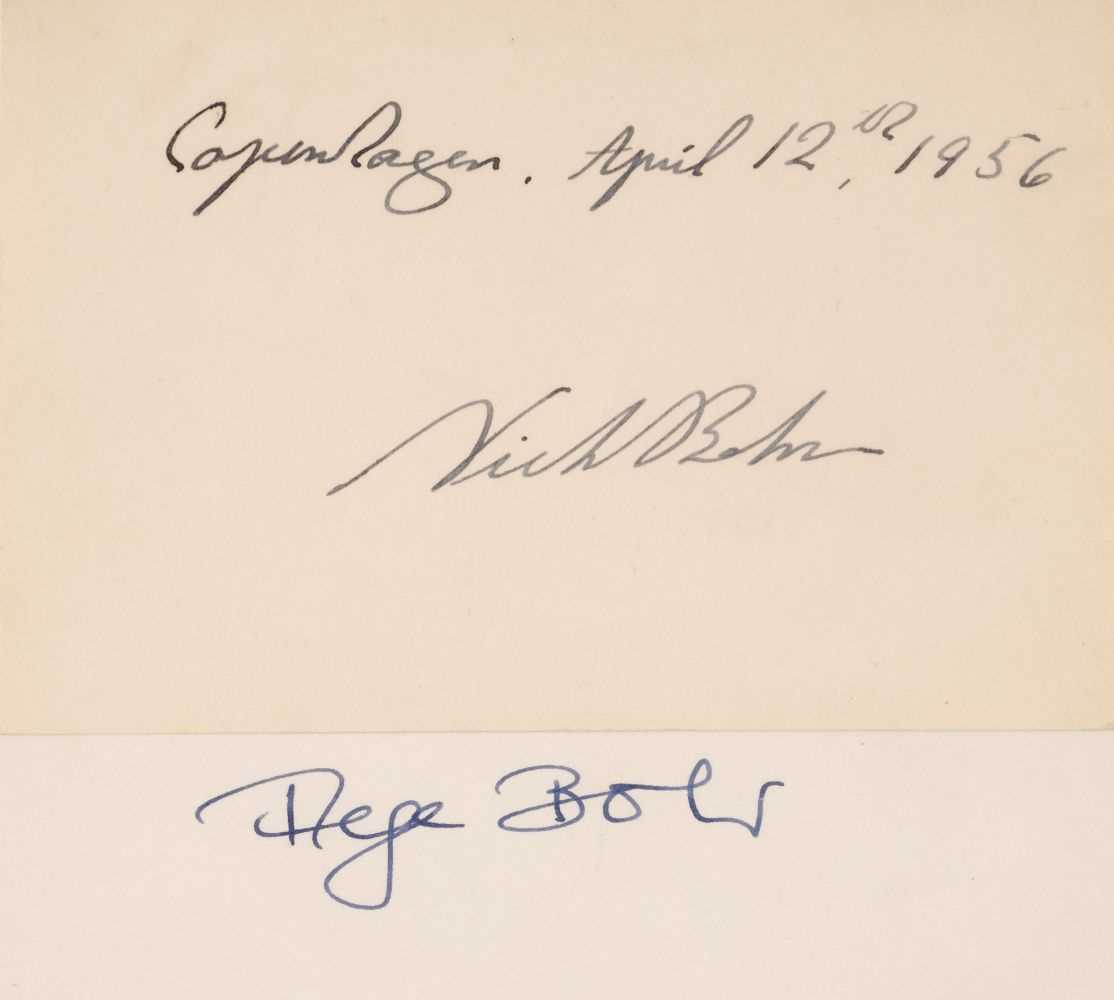 Copenhagen. April 12th, 1956
Niels Bohr
Aage Bohr